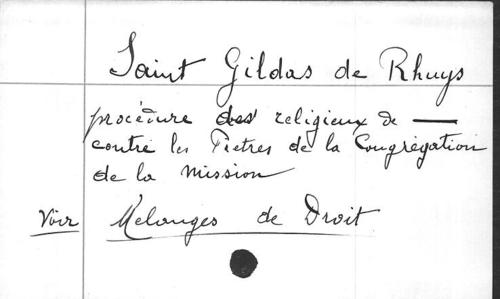 Saint Gildas de Rhuys
procédure des religieux de —
contre les Prêtres de la Congrégation
de la Mission
Voir Mélanges de Droit